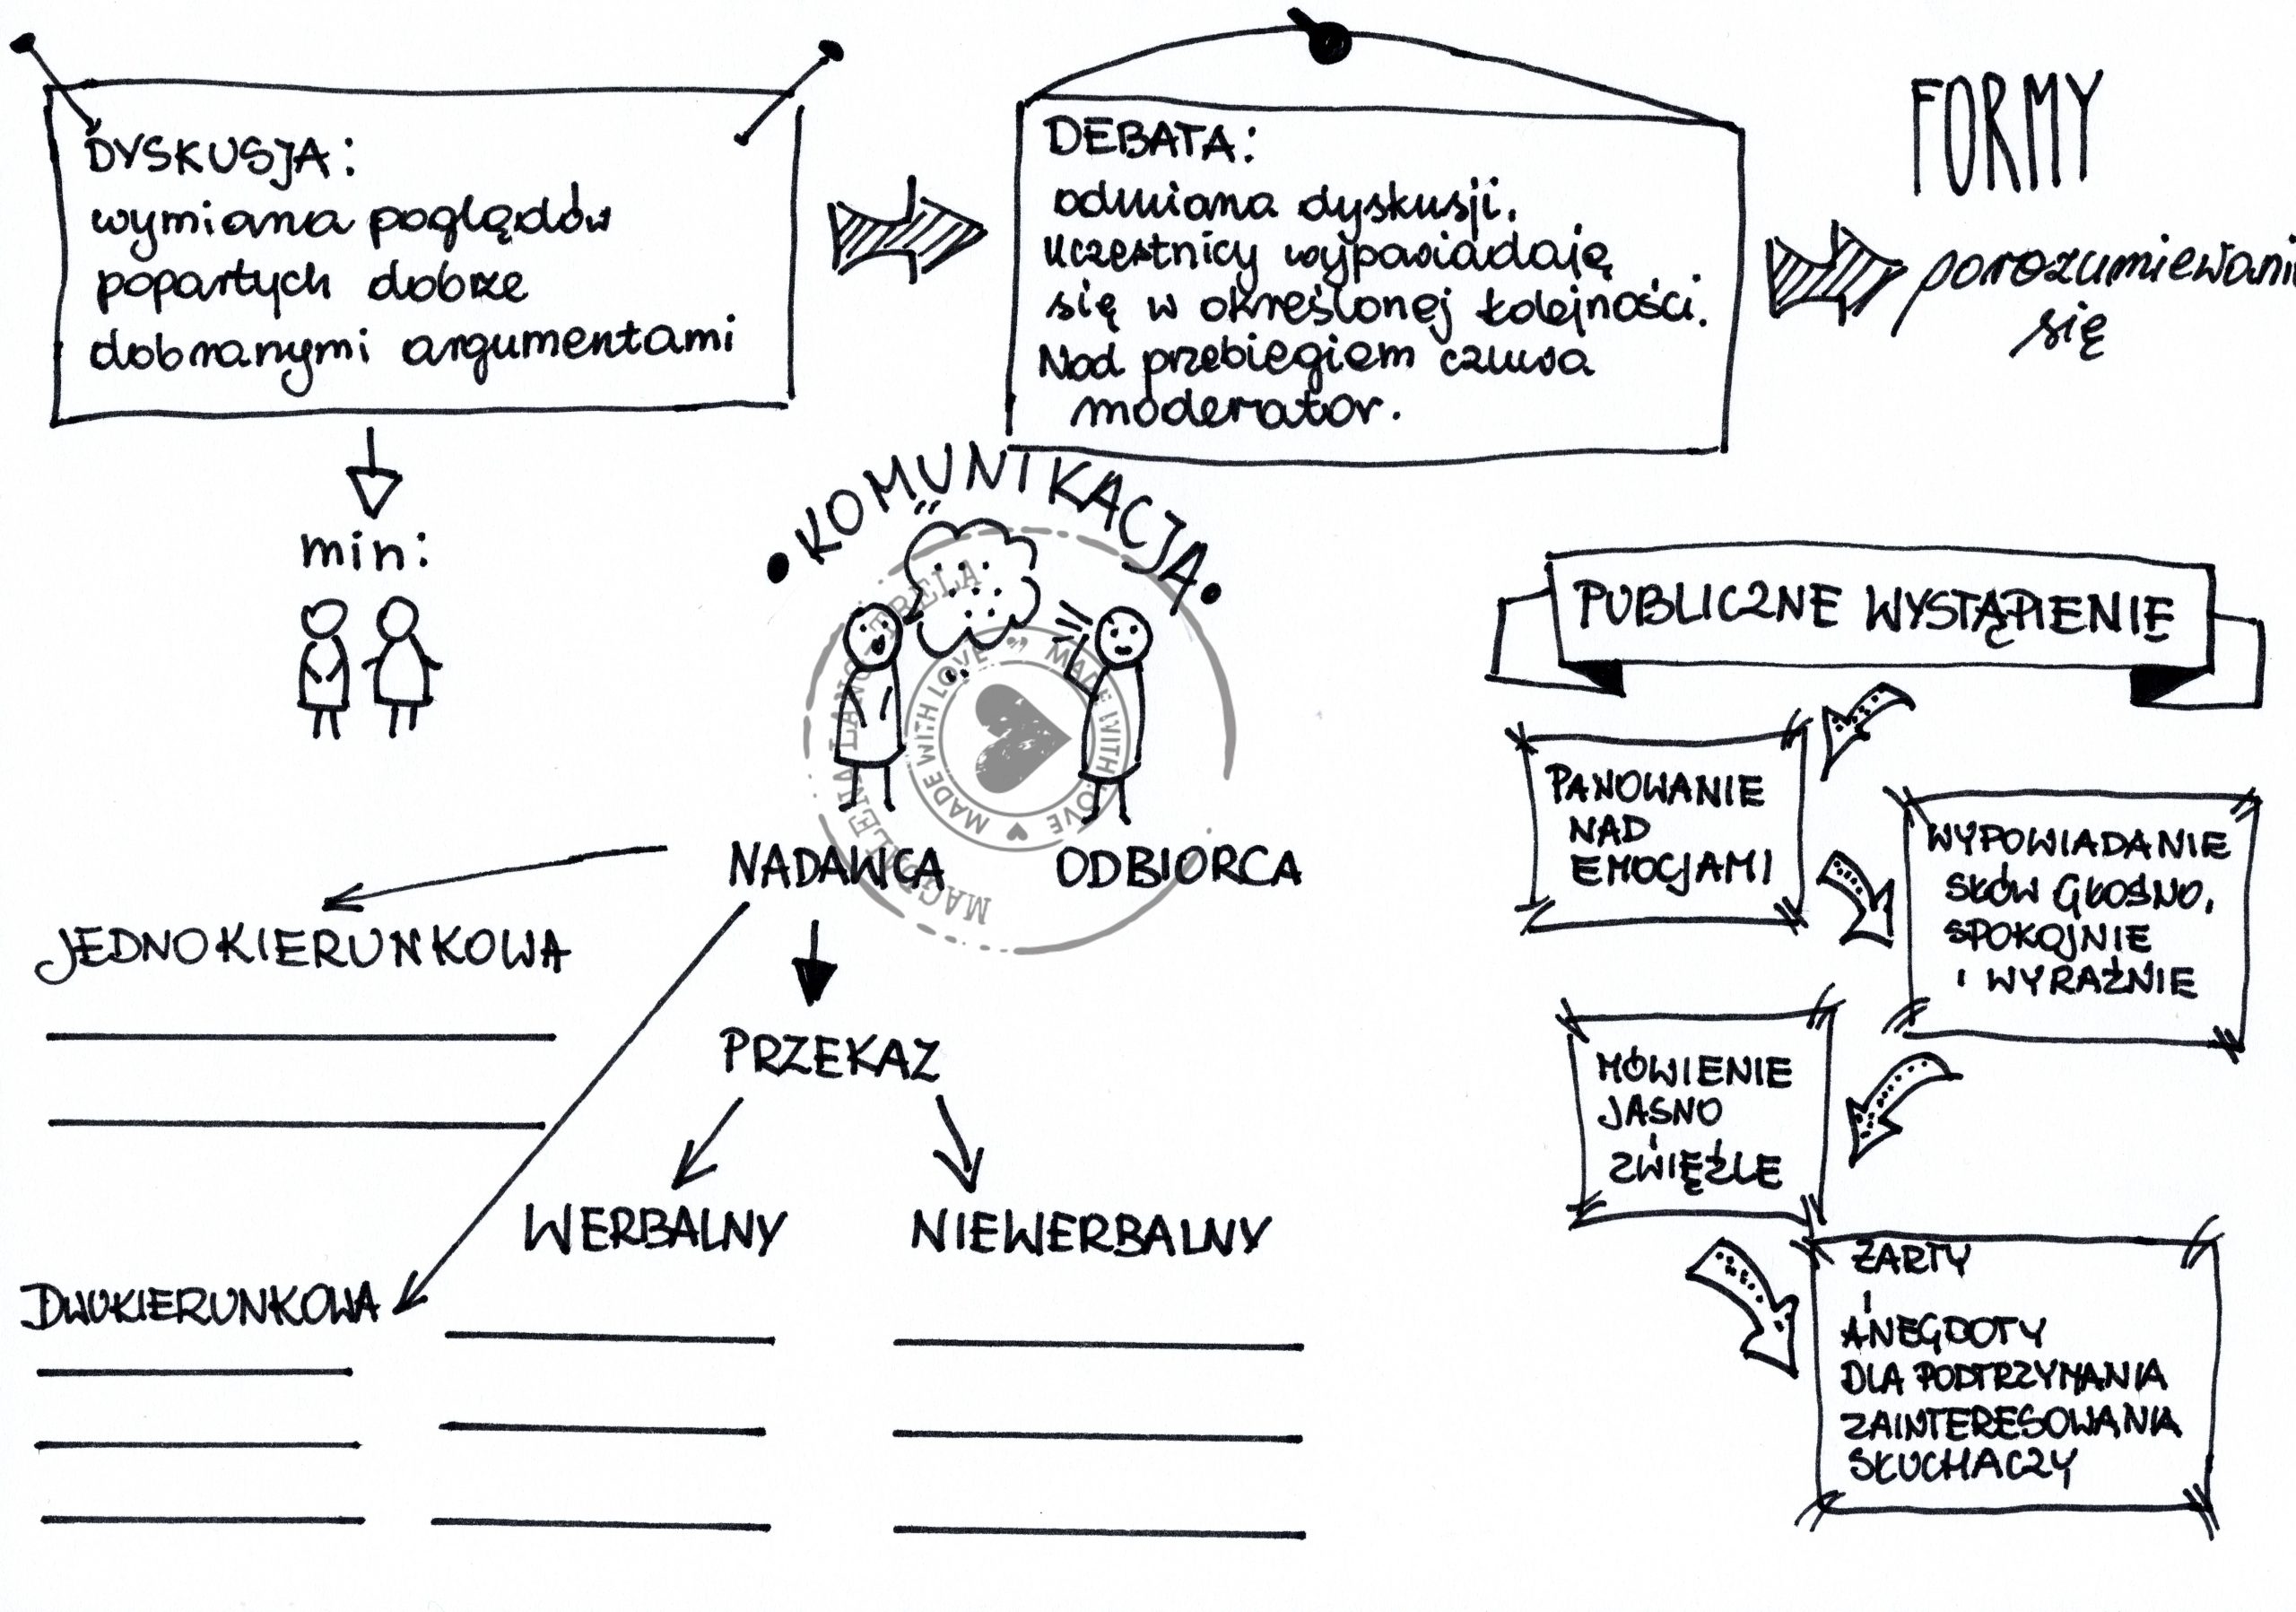 DYSKUSJA:
wymiana poglądów
popartych dobrze
dobranymi argumentami
DEBATA:
odmiana dyskusji.
Uczestnicy wypowiadają
się w określonej kolejności.
Nad przebiegiem czuwa
moderator.
FORMY
porozumiewani
się
min:
KOMUNIKACJA
NADAWCA
ODBIORCA
JEDNOKIERUNKOWA
PRZEKAZ
WERBALNY
NIEWERBALNY
DWUKIERUNKOWA
PUBLICZNE WYSTĄPIENIE
PANOWANIE
NAD
EMOCJAMI
WYPOWIADANIE
SŁÓW GŁOŚNO,
SPOKOJNIE
I WYRAŹNIE
MÓWIENIE
JASNO
I
ZWIĘŹLE
ŻARTY
I
ANEGDOTY
DLA PODTRZYMANIA
ZAINTERESOWANIA
SŁUCHACZY
MAGDALENA LANG-TRELA
MADE WITH LOVE
MADE WITH LOVE
MADE WITH LOVE